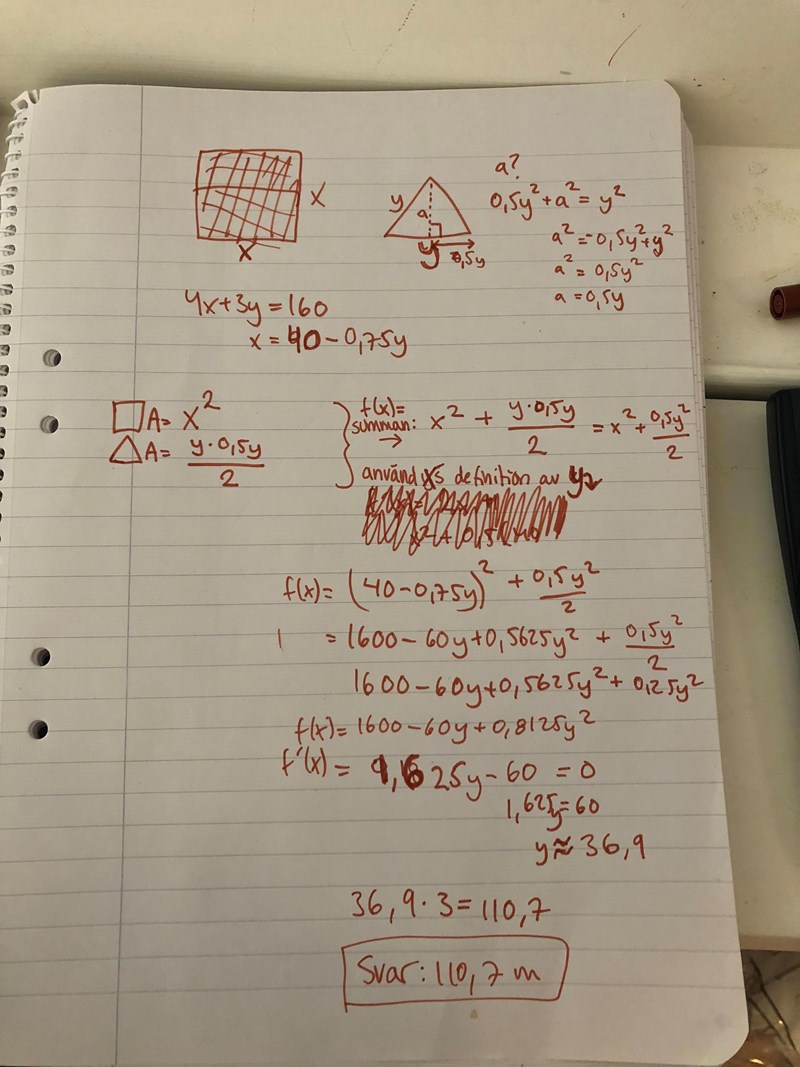 x
x
y
a
y
0,5y
a?
0,5y² + a² = y²
a² = -0,5y² + y²
a² = 0,5y²
a = 0,5y
4x+3y = 160
x = 40 - 0,75y
□A = x²
△A = y·0,5y / 2
f(x) =
summan: x² + y·0,5y / 2 = x² + 0,5y² / 2
→
använd xs definition av y
f(x) = (40 - 0,75y)² + 0,5y² / 2
= 1600 - 60y + 0,5625y² + 0,5y² / 2
1600 - 60y + 0,5625y² + 0,25y²
f(x) = 1600 - 60y + 0,8125y²
f'(x) = 1,625y - 60 = 0
1,625y = 60
y ≈ 36,9
36,9 · 3 = 110,7
Svar: 110,7 m